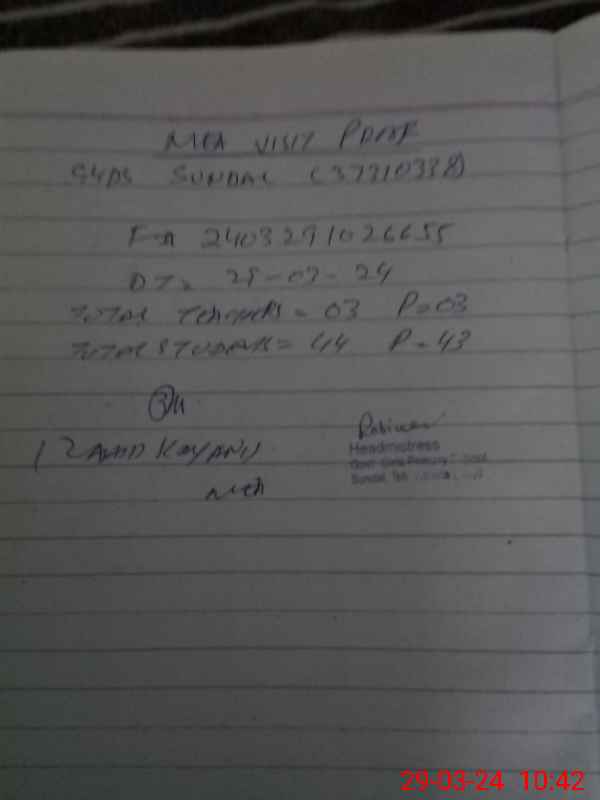 MEA VISIT PROOF
GGPS SUNDAL (37310338)
2403291026655
DT = 29-03-24
TOTAL TEACHERS = 03 P = 03
TOTAL STUDENTS = 44 P = 43
(ZAHID KAYANI)
MEA
Headmistress
Govt. Girls Primary School
Sundal
29-03-24 10:42